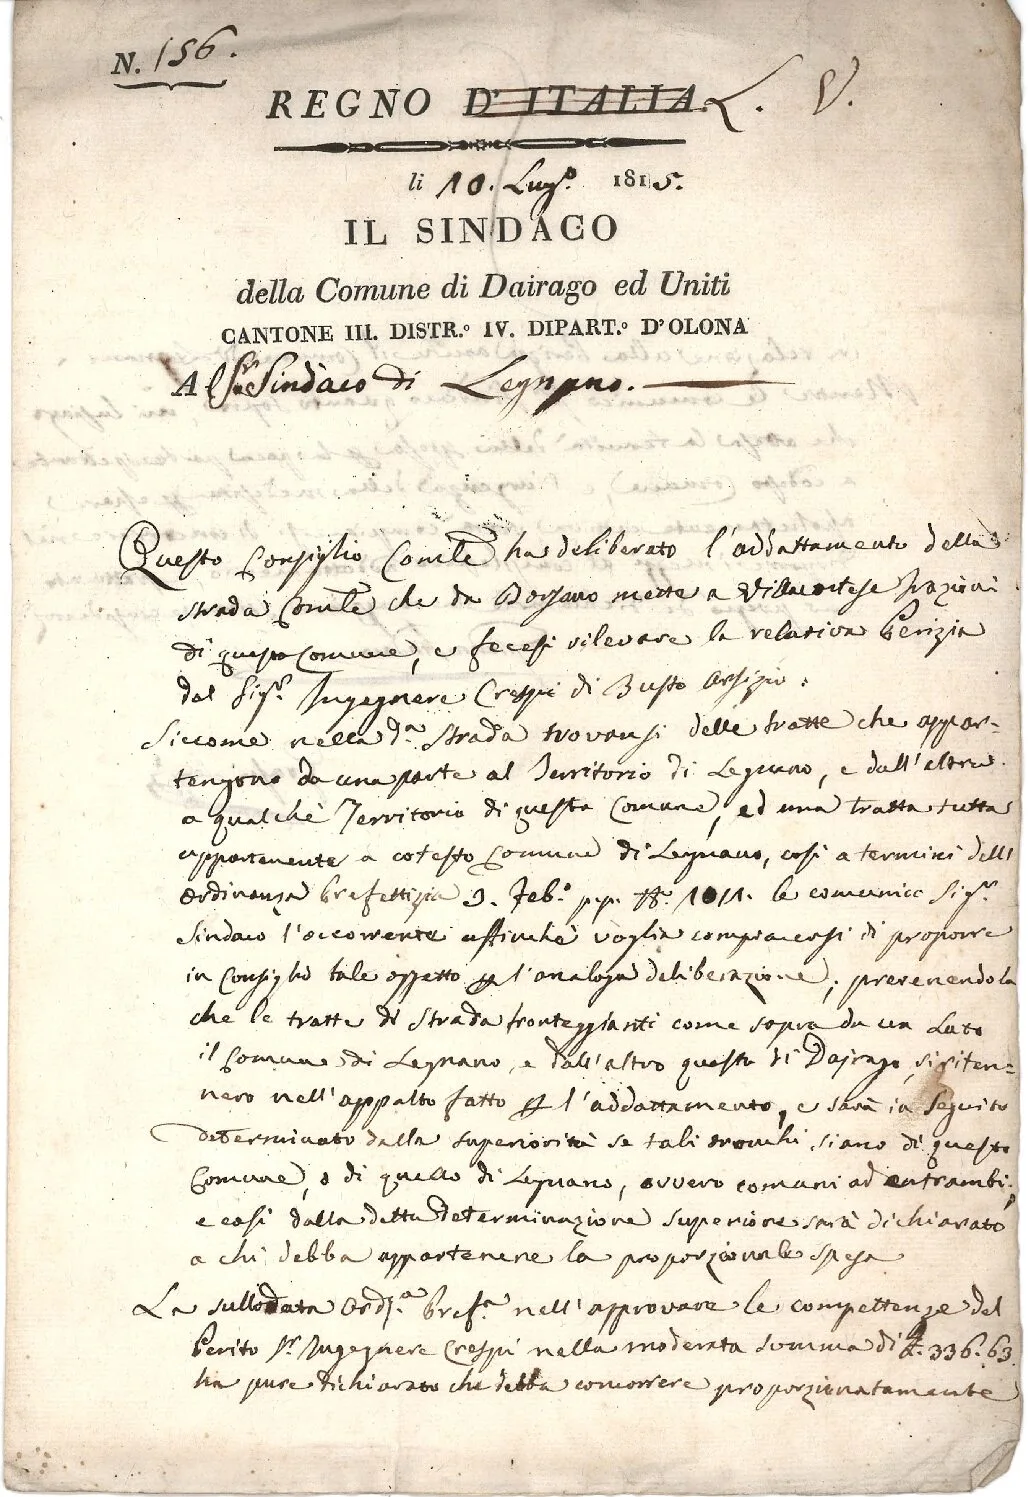 N. 156.
REGNO D'ITALIA L. V.
li 10. Lug.º 1815.
IL SINDACO
della Comune di Dairago ed Uniti
CANTONE III. DISTR.º IV. DIPART.º D'OLONA
Al Sr. Sindaco di Legnano.
Questo Consiglio Comle ha deliberato l'addattamento della
strada Comle che da Borsano mette a Villacortese frazioni
di questa Comune, e fecesi rilevare la relativa Perizia
dal Sigr. Ingegnere Crespi di Busto Arsizio.
Siccome nella da. Strada trovansi delle tratte che appar=
tengono da una parte al Territorio di Legnano, e dall'altra
a qualche Territorio di questa Comune, ed una tratta tutta
appartenente a cotesto Comune di Legnano, così a termini dell'
Ordinanza Prefettizia 3. Febº. p.p. Nº. 1011. le comunico Sigr.
Sindaco l'occorrente affinchè voglia compiacersi di proporre
in Consiglio tale oggetto per l'analoga deliberazione, prevenendola
che le tratte di Strada fronteggianti come sopra da un Lato
il Comune di Legnano, e dall'altro questa di Dajrago, si riten=
nero nell'appalto fatto per l'addattamento, e sarà in seguito
determinato dalla superiorità se tali tronchi siano di questo
Comune, o di quello di Legnano, ovvero comuni ad entrambi,
e così dalla detta determinazione superiore sarà dichiarato
a chi debba appartenere la proporzionale spesa
La sullodata Ord.a Pref.a nell'approvare le compettenze del
Perito Sr. Ingegnere Crespi nella moderata somma di 336. 63
ha pure dichiarato che debba concorrere proporzionatamente